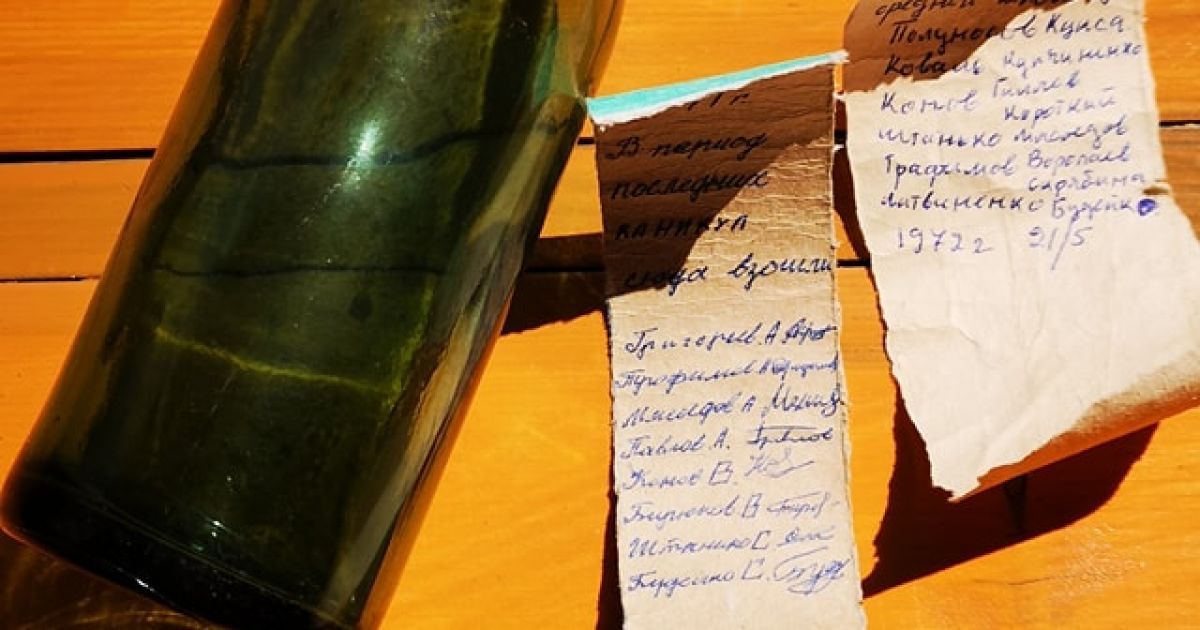 В период
последних
каникул
сюда взошли
Григорьев А
Трофимов
Мясоедов А
Павлов А.
Конов В.
Бирюков В
Штанько С
Будейко С.
средней
Полуносов Кукса
Коваль Купчиненко
Конов Гиллев
Короткий
Штанько Мясоедов
Трафимов Воропаев
Скрябина
Литвиненко Будейко
1972г 21/5